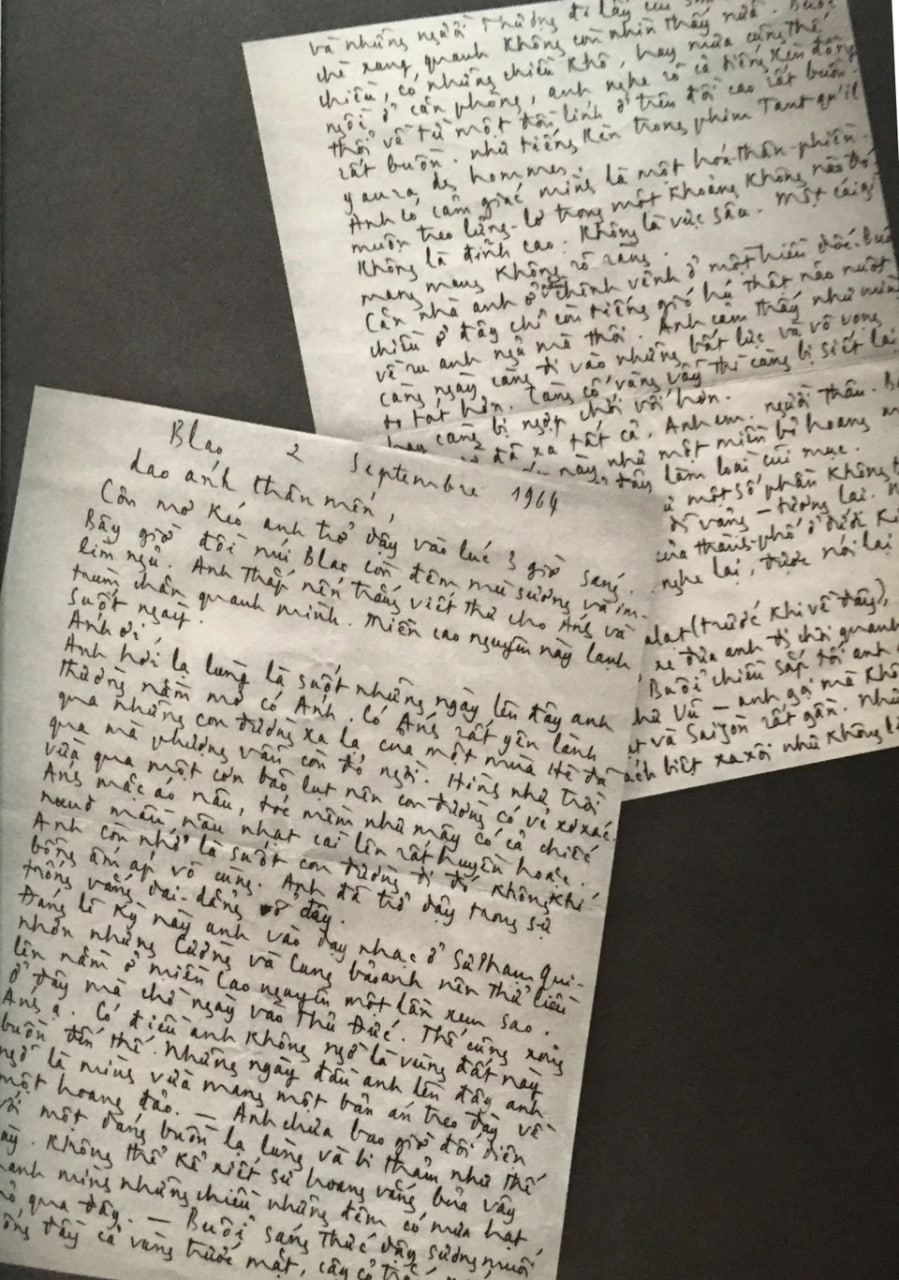 Blao 2 Septembre 1964
dao ánh thân mến,
Cơn mơ kéo anh trở dậy vào lúc 3 giờ sáng.
Bây giờ đồi núi Blao còn đêm mù sương và im-
lìm ngủ. Anh thắp nến trắng viết thư cho Ánh và
trùm chăn quanh mình. Miền cao nguyên này lạnh
suốt ngày.
Ánh ơi!
Anh hơi lạ lùng là suốt những ngày lên đây anh
thường nằm mơ có Ánh. Có Ánh rất yên lành
qua những con đường xa lạ của một mùa Hè đã
qua mà phượng vẫn còn đỏ ngời. Hình như trời
vừa qua một cơn bão lụt nên con đường có vẻ xơ xác.
Ánh mặc áo nâu, tóc mềm như mây có cả chiếc
nơud mầu nâu nhạt cài lên rất huyễn hoặc.
Anh còn nhớ là suốt con đường đi đó không khí
bỗng ấm áp vô cùng. Anh đã trở dậy trong sự
trống vắng dai-dẳng ở đây.
Đáng lẽ kỳ này anh vào dạy nhạc ở Sư Phạm Qui-
nhơn nhưng Cường và Cung bảo anh nên thử liều
lên nằm ở miền Cao nguyên một lần xem sao.
Ở đây mà chờ ngày vào Thủ Đức. Thế cũng xong
Ánh ạ. Có điều anh không ngờ là vùng đất này
buồn đến thế. Những ngày đầu anh lên đây anh
ngỡ là mình vừa mang một bản án treo đày về
một hoang đảo. — Anh chưa bao giờ đối diện
với một dáng buồn lạ lùng và bi thảm như thế
này. Không thể kể xiết sự hoang vắng bủa vây
quanh mình những chiều những đêm có mưa hạt
nhỏ qua đây. — Buổi sáng thức dậy sương muối
đầy cả vùng trước mặt, cây cỏ
và những người Thượng đi lấy củi
chè xung quanh không còn nhìn thấy nữa. Buổi
chiều, có những chiều khô, hay mưa cũng thế
ngồi ở căn phòng, anh nghe rõ cả tiếng kèn đồng
thổi về từ một đồn lính ở trên đồi cao rất buồn.
rất buồn. như tiếng kèn trong phim Tant qu'il
y aura des hommes.
Anh có cảm giác mình là một hoá-thân-phiền-
muộn treo lửng-lơ trong một khoảng không nào đó
không là đỉnh cao. Không là vực sâu. Một cái gì
mang mang không rõ ràng.
Căn nhà anh ở chênh vênh ở một hiên dốc. Buổi
chiều ở đây chỉ còn tiếng gió hú thật não nuột
về ru anh ngủ mà thôi. Anh cảm thấy như mình
càng ngày càng đi vào những bất lực và vô vọng
to tát hơn. Càng cố vùng vẫy thì càng bị siết lại
hay càng bị ngợp chới với hơn.
đã xa tất cả. Anh em. người thân.
này như một miền bỏ hoang
đây làm loài cùi mục.
một số phận không
dĩ vãng – tương lai.
của thành-phố ở dưới
nghe lại, được nói lại
alat (trước khi về đây),
xe đưa anh đi chơi quanh
Buổi chiều sắp tới anh
Vũ – anh gọi mà không
và Saigon rất gần. Như
cách biệt xa xôi như không